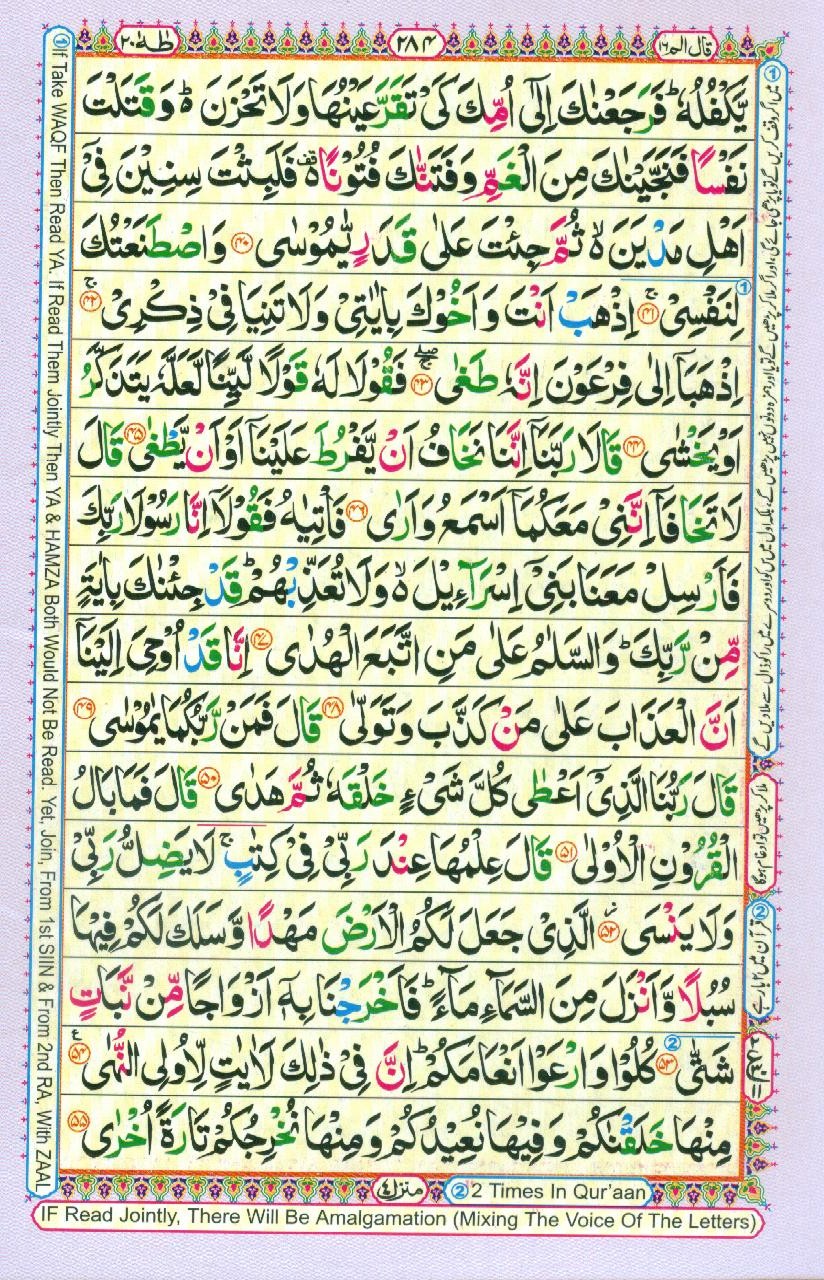 قال الم ١٦
٢٨٤
طٰهٰ ٢٠
يَّكْفُلُهٗ ؕ فَرَجَعْنٰكَ اِلٰۤى اُمِّكَ كَىْ تَقَرَّ عَيْنُهَا وَلَا تَحْزَنَ ؕ۬ وَقَتَلْتَ
نَفْسًا فَنَجَّيْنٰكَ مِنَ الْغَمِّ وَفَتَنّٰكَ فُتُوْنًا ۬۫ فَلَبِثْتَ سِنِيْنَ فِىْۤ
اَهْلِ مَدْيَنَ ۙ۬ ثُمَّ جِئْتَ عَلٰى قَدَرٍ يّٰمُوْسٰى ﴿۴۰﴾ وَاصْطَنَعْتُكَ
لِنَفْسِىْ ۚ ﴿۴۱﴾ اِذْهَبْ اَنْتَ وَاَخُوْكَ بِاٰيٰتِىْ وَلَا تَنِيَا فِىْ ذِكْرِىْ ۚ ﴿۴۲﴾
اِذْهَبَاۤ اِلٰى فِرْعَوْنَ اِنَّهٗ طَغٰى ۚۖ ﴿۴۳﴾ فَقُوْلَا لَهٗ قَوْلًا لَّيِّنًا لَّعَلَّهٗ يَتَذَكَّرُ
اَوْ يَخْشٰى ﴿۴۴﴾ قَالَا رَبَّنَاۤ اِنَّنَا نَخَافُ اَنْ يَّفْرُطَ عَلَيْنَاۤ اَوْ اَنْ يَّطْغٰى ﴿۴۵﴾ قَالَ
لَا تَخَافَاۤ اِنَّنِىْ مَعَكُمَاۤ اَسْمَعُ وَاَرٰى ﴿۴۶﴾ فَاْتِيٰهُ فَقُوْلَاۤ اِنَّا رَسُوْلَا رَبِّكَ
فَاَرْسِلْ مَعَنَا بَنِىْۤ اِسْرَآءِيْلَ ۙ۬ وَلَا تُعَذِّبْهُمْ ؕ قَدْ جِئْنٰكَ بِاٰيَةٍ
مِّنْ رَّبِّكَ ؕ وَالسَّلٰمُ عَلٰى مَنِ اتَّبَعَ الْهُدٰى ﴿۴۷﴾ اِنَّا قَدْ اُوْحِىَ اِلَيْنَاۤ
اَنَّ الْعَذَابَ عَلٰى مَنْ كَذَّبَ وَتَوَلّٰى ﴿۴۸﴾ قَالَ فَمَنْ رَّبُّكُمَا يٰمُوْسٰى ﴿۴۹﴾
قَالَ رَبُّنَا الَّذِىْۤ اَعْطٰى كُلَّ شَىْءٍ خَلْقَهٗ ثُمَّ هَدٰى ﴿۵۰﴾ قَالَ فَمَا بَالُ
الْقُرُوْنِ الْاُوْلٰى ﴿۵۱﴾ قَالَ عِلْمُهَا عِنْدَ رَبِّىْ فِىْ كِتٰبٍ ۚ لَا يَضِلُّ رَبِّىْ
وَلَا يَنْسَى ۙ﴿۵۲﴾ الَّذِىْ جَعَلَ لَكُمُ الْاَرْضَ مَهْدًا وَّسَلَكَ لَكُمْ فِيْهَا
سُبُلًا وَّاَنْزَلَ مِنَ السَّمَآءِ مَآءً ؕ فَاَخْرَجْنَا بِهٖۤ اَزْوَاجًا مِّنْ نَّبَاتٍ
شَتّٰى ﴿۵۳﴾ كُلُوْا وَارْعَوْا اَنْعَامَكُمْ ؕ اِنَّ فِىْ ذٰلِكَ لَاٰيٰتٍ لِّاُولِى النُّهٰى ﴿۵۴﴾ ع
مِنْهَا خَلَقْنٰكُمْ وَفِيْهَا نُعِيْدُكُمْ وَمِنْهَا نُخْرِجُكُمْ تَارَةً اُخْرٰى ﴿۵۵﴾
ملا کر پڑھیں تو ادغام ہوگا
② قرآن میں ۲ بار ہے
منزل ٤
② 2 Times In Qur'aan
① If Take WAQF Then Read YA. If Read Them Jointly Then YA & HAMZA Both Would Not Be Read. Yet, Join, From 1st SIIN & From 2nd RA, With ZAAL
IF Read Jointly, There Will Be Amalgamation (Mixing The Voice Of The Letters)